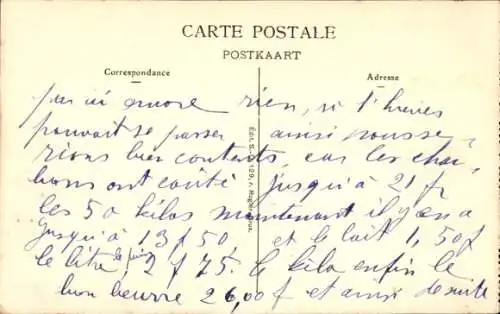 CARTE POSTALE
POSTKAART
Correspondance
Adresse
par ici encore rien, si l'hivers
pouvait se passer ainsi nousse
rions bien contents, car les char
bons ont coûté jusqu'à 21 f
les 50 kilos maintenant il y en a
jusqu'à 13 f 50, et le lait 1,50 f
le litre, 2 f 75. le kilo enfin le
bon beurre 26,00 f et ainsi de suite